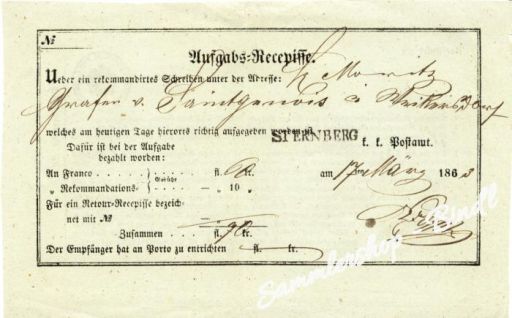 No
Aufgabs-Recepisse.
Ueber ein rekommandirtes Schreiben unter der Adresse: H Moritz
Grafen v. Saintgenois in Weikersdorf
welches am heutigen Tage hierorts richtig aufgegeben worden ist
STERNBERG k. k. Postamt.
Dafür ist bei der Aufgabe
bezahlt worden:
An Franco Gebühr fl. kr.
am 17 März 1863
„ Rekommandations- „ 10 „
Für ein Retour-Recepisse bezeich-
net mit No
Zusammen fl. kr.
Der Empfänger hat an Porto zu entrichten fl. kr.
Sammlershop Rindl